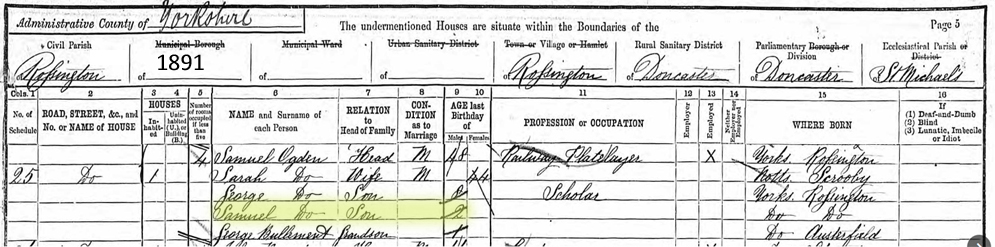 Administrative County of Yorkshire
The undermentioned Houses are situate within the Boundaries of the
Page 5
Civil Parish
of Rossington
Municipal Borough
of
1891
Municipal Ward
of
Urban Sanitary District
of
Town or Village or Hamlet
of Rossington
Rural Sanitary District
of Doncaster
Parliamentary Borough or Division
of Doncaster
Ecclesiastical Parish or District
of St Michaels
Cols. 1 2 3 4 5 6 7 8 9 10 11 12 13 14 15 16
No. of Schedule
ROAD, STREET, &c., and No. or NAME of HOUSE
HOUSES
Inhabited
Uninhabited (U.), or Building (B.)
Number of rooms occupied if less than five
NAME and Surname of each Person
RELATION to Head of Family
CONDITION as to Marriage
AGE last Birthday of
Males Females
PROFESSION or OCCUPATION
Employer
Employed
Neither Employer nor Employed
WHERE BORN
If
(1) Deaf-and-Dumb
(2) Blind
(3) Lunatic, Imbecile or Idiot
4 Samuel Ogden Head M 48 Railway Platelayer X Yorks. Rossington
25 Do 1 Sarah Do Wife M 44 Notts Scrooby
George Do Son Scholar Yorks. Rossington
Samuel Do Son 2 Do Do
George Bullement Grandson Do Austerfield